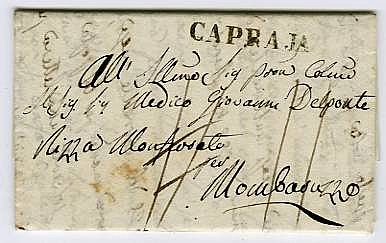 CAPRAJA
All' Illmo Sig pron Colmo
Il Sig Sig Medico Giovanni Delponte
Nizza Monferrato
per
Mombaruzzo